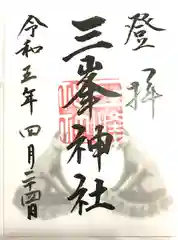 登拝
三峯神社
令和五年四月二十四日